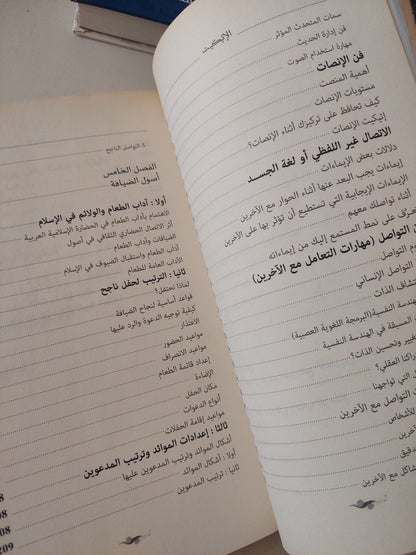 الإتيكيت
سمات المتحدث المؤثر
فن إدارة الحديث
مهارة استخدام الصوت
فن الإنصات
أهمية المنصت
مستويات الإنصات
كيف تحافظ على تركيزك أثناء الإنصات؟
إتيكيت الإنصات
الاتصال غير اللفظي أو لغة الجسد
دلالات بعض الإيماءات
إيماءات يجب البعد عنها أثناء الحوار مع الآخرين
الإيماءات الإيجابية التي تستطيع أن تؤثر بها على الآخرين
أثناء تواصلك معهم
على نمط المستمع إليك من إيماءاته
التواصل (مهارات التعامل مع الآخرين)
التواصل
التواصل الإنساني
الذات
النفسية (البرمجة اللغوية العصبية)
المسبقة في الهندسة النفسية
وتحسين الذات؟
العقلي؟
التي تواجهنا
التواصل مع الآخرين
مع الآخرين
5 التواصل الناجح
الفصل الخامس
أصول الضيافة
أولا : آداب الطعام والولائم في الإسلام
الاهتمام بآداب الطعام في الحضارة الإسلامية العربية
أثر الاتصال الحضاري الثقافي في أصول
الضيافات وآداب الطعام
آداب الطعام واستقبال الضيوف في الإسلام
الآداب العامة للطعام
ثانيا : الترتيب لحفل ناجح
لماذا نحتفل؟
قواعد أساسية لنجاح الضيافة
كيفية توجيه الدعوة والرد عليها
الاعتذار
مواعيد الحضور
مواعيد الانصراف
إعداد قائمة الطعام
الإضاءة
مكان الحفل
أنواع الدعوات
مواعيد إقامة الحفلات
ثالثا : إعدادات الموائد وترتيب المدعوين
أشكال الموائد وترتيب المدعوين عليها
أولا : أشكال الموائد
ثانيا : ترتيب المدعوين
8
08
08
209